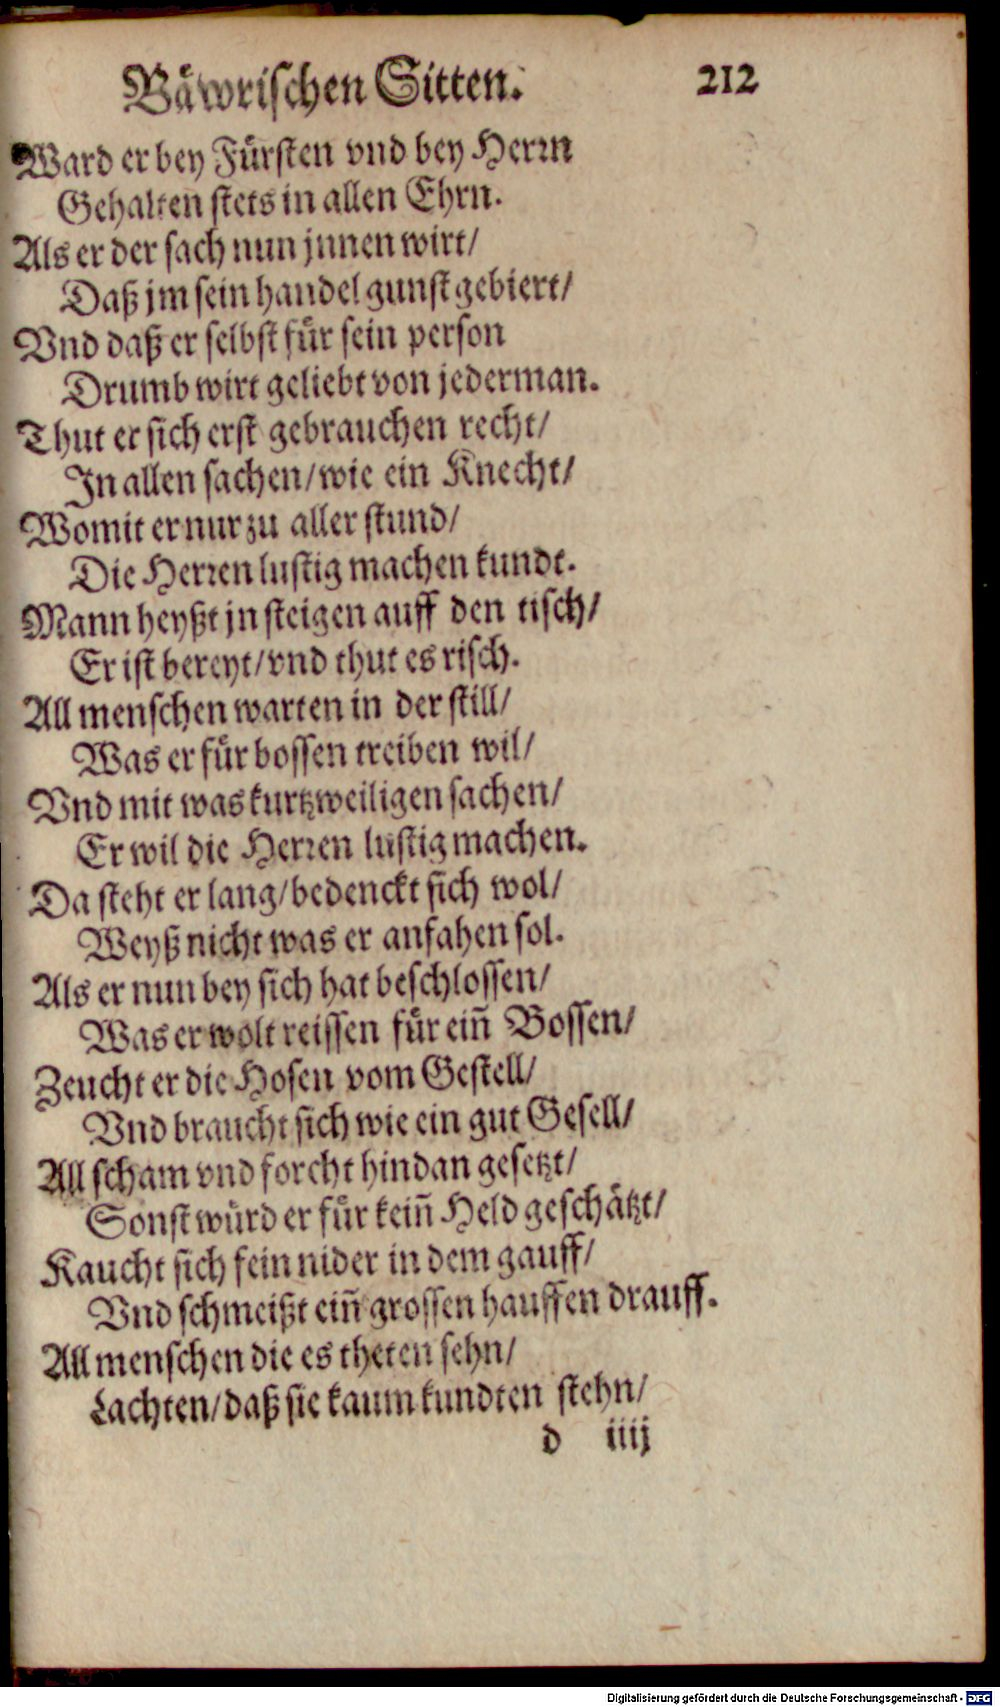 Bäwrischen Sitten. 212
Ward er bey Fürsten vnd bey Herrn
Gehalten stets in allen Ehrn.
Als er der sach nun jnnen wirt/
Daß jm sein handel gunst gebiert/
Vnd daß er selbst für sein person
Drumb wirt geliebt von jederman.
Thut er sich erst gebrauchen recht/
In allen sachen/ wie ein Knecht/
Womit er nur zu aller stund/
Die Herren lustig machen kundt.
Mann heyßt jn steigen auff den tisch/
Er ist bereyt/ vnd thut es risch.
All menschen warten in der still/
Was er für bossen treiben wil/
Vnd mit was kurtzweiligen sachen/
Er wil die Herren lustig machen.
Da steht er lang/ bedenckt sich wol/
Weyß nicht was er anfahen sol.
Als er nun bey sich hat beschlossen/
Was er wolt reissen für eiñ Bossen/
Zeucht er die Hosen vom Gestell/
Vnd braucht sich wie ein gut Gesell/
All scham vnd forcht hindan gesetzt/
Sonst würd er für keiñ Held geschätzt/
Kaucht sich fein nider in dem gauff/
Vnd schmeißt eiñ grossen hauffen drauff.
All menschen die es theten sehn/
Lachten/ daß sie kaum kundten stehn/
d iiij
Digitalisierung gefördert durch die Deutsche Forschungsgemeinschaft - DFG